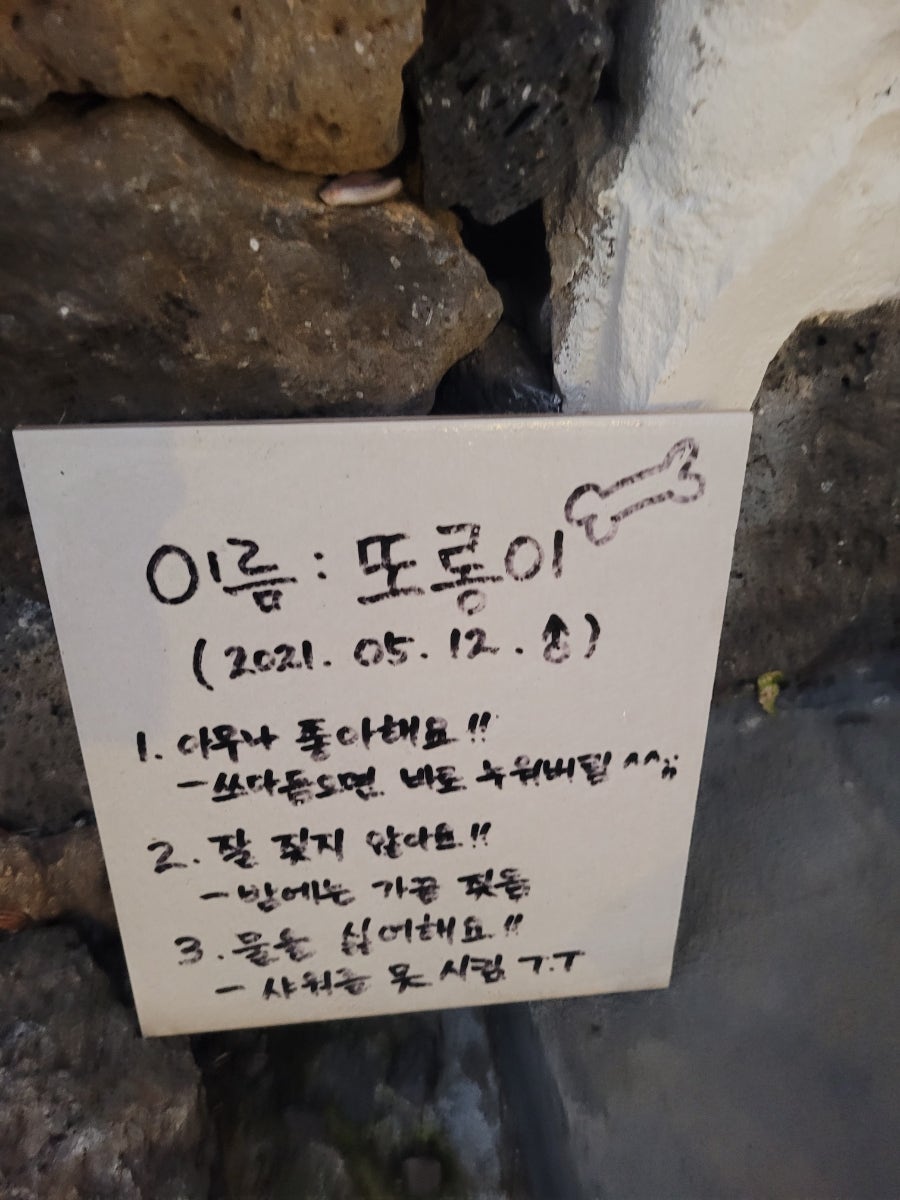 이름 : 또롱이
(2021. 05. 12. ♂)
1. 아무나 좋아해요!!
- 쓰다듬으면 바로 누워버림 ^^;;
2. 잘 짖지 않아요!!
- 밤에는 가끔 짖음
3. 물을 싫어해요!!
- 샤워를 못 시킴 ㅜ.ㅜ